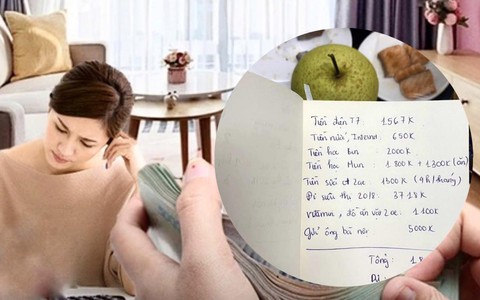 Tiền điện T7 1567K
Tiền nước, Internet: 650K
Tiền học Bun 2000K
Tiền học Mun: 1800K + 1300K (ăn)
Tiền sữa 2ae 1500K (9h/tháng)
Đi siêu thị 20/8: 3718K
Vitamin, đồ ăn vặt 2ae: 1.400K
Gửi ông bà nội 5000K
Tổng: 18